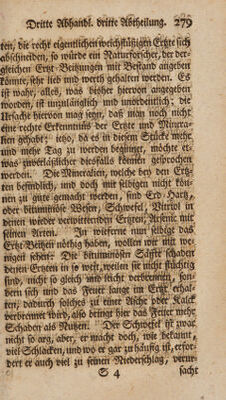 Dritte Abhandl. dritte Abtheilung. 279
ten, die recht eigentlichen weichflüßigen Ertzte sich
abschneiden, so würde ein Naturforscher, der der-
gleichen Ertzt-Beitzungen mit Bestand angeben
könnte, sehr lieb und werth gehalten werden. Es
ist wahr, alles, was bisher hiervon angegeben
worden, ist unzulänglich und unordentlich; die
Ursache hiervon mag seyn, daß man noch nicht
eine rechte Erkenntnuß der Ertzte und Minera-
lien gehabt; itzo, da es in diesem Stücke mehr
und mehr Tag zu werden beginnet, möchte et-
was zuverläßlicher diesfalls können gesprochen
werden. Die Mineralien, welche bey den Ertz-
ten befindlich, und doch mit selbigen nicht kön-
nen zu gute gemacht werden, sind Erd-Hartz,
oder bituminöse Wesen, Schwefel, Vitriol in
denen wieder verwitternden Ertzten, Arsenic mit
seinen Arten. In wieferne nun selbige das
Ertzt-Beitzen nöthig haben, wollen wir mit we-
nigen sehen: Die bituminösen Säfte schaden
denen Ertzten in so weit, weilen sie nicht flüchtig
sind, nicht so gleich und leicht verbrennen, son-
dern sich und das Feuer lange im Ertzt erhal-
ten, dadurch solches zu einer Asche oder Kalck
verbrennet wird, also bringt hier das Feuer mehr
Schaden als Nutzen. Der Schwefel ist zwar
nicht so arg, aber, er macht doch, wie bekannt,
viel Schlacken, und wo er gar zu häufig ist, erfor-
dert er auch viel zu seinen Niederschlag, verur-
S 4 sacht